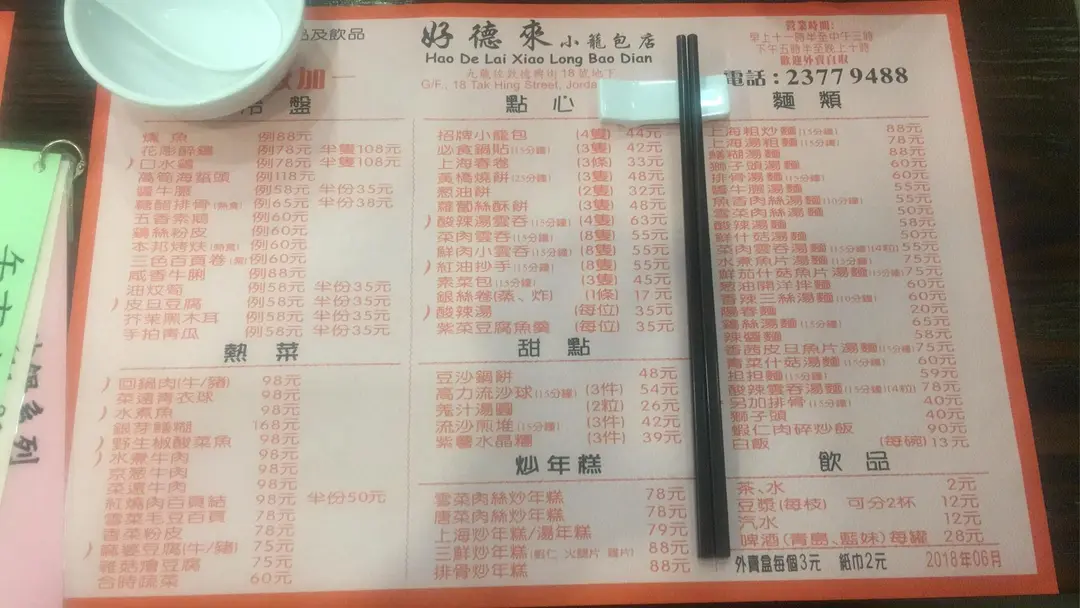 品及飲品
好德來小龍包店
Hao De Lai Xiao Long Bao Dian
九龍佐敦德興街18號地下
G/F., 18 Tak Hing Street, Jorda
營業時間:
早上十一時半至中午三時
下午五時半至晚上十時
歡迎外賣自取
電話:2377 9488
加一
冷盤
燻魚 例88元
花彫醉鷄 例78元 半隻108元
口水鷄 例78元 半隻108元
萵筍海蜇頭 例118元
醬牛𦟌 例58元 半份35元
糖醋排骨(熱食) 例65元 半份38元
五香素鵝 例60元
鷄絲粉皮 例60元
本邦烤伕(熱食) 例60元
三色百頁卷 例60元
咸香牛脷 例88元
油炆筍 例58元 半份35元
皮旦豆腐 例58元 半份35元
芥茉黑木耳 例58元 半份35元
手拍青瓜 例58元 半份35元
熱菜
回鍋肉(牛/豬) 98元
菜遠青衣球 98元
水煮魚 98元
銀芽鱔糊 168元
野生椒酸菜魚 98元
水煮牛肉 98元
京葱牛肉 98元
菜遠牛肉 98元
紅燒肉百頁結 98元 半份50元
雪菜毛豆百頁 78元
香菜粉皮 78元
麻婆豆腐(牛/豬) 75元
雜菇燴豆腐 75元
合時蔬菜 60元
點心
招牌小龍包 (4隻) 44元
必食鍋貼(15分鐘) (3隻) 42元
上海春卷 (3條) 33元
黃橋燒餅(25分鐘) (3隻) 48元
葱油餅 (2隻) 32元
蘿蔔絲酥餅 (3隻) 48元
酸辣湯雲吞(15分鐘) (4隻) 63元
菜肉雲吞(15分鐘) (8隻) 55元
鮮肉小雲吞(15分鐘) (8隻) 55元
紅油抄手(15分鐘) (8隻) 55元
素菜包(15分鐘) (3隻) 45元
銀絲卷(蒸、炸) (1條) 17元
酸辣湯 (每位) 35元
紫菜豆腐魚羹 (每位) 35元
甜點
豆沙鍋餅 48元
高力流沙球(15分鐘) (3件) 54元
羗汁湯圓 (2粒) 26元
流沙煎堆(15分鐘) (3件) 42元
紫薯水晶 (3件) 39元
炒年糕
雪菜肉絲炒年糕 78元
唐菜肉絲炒年糕 78元
上海炒年糕/湯年糕 79元
三鮮炒年糕(蝦仁 火腿片 雞片) 88元
排骨炒年糕 88元
麵類
上海粗炒麵(15分鐘) 88元
上海湯粗麵(15分鐘) 78元
鱔糊湯麵 88元
獅子頭湯麵 60元
排骨湯麵(15分鐘) 60元
醬牛𦟌湯麵 60元
魚香肉絲湯麵(10分鐘) 55元
雪菜肉絲湯麵 50元
酸辣湯麵 58元
鮮什菇湯麵 50元
菜肉雲吞湯麵(15分鐘)(4粒) 55元
水煮魚片湯麵(15分鐘) 75元
鮮茄什菇魚片湯麵(15分鐘) 75元
葱油開洋拌麵 60元
香辣三絲湯麵(10分鐘) 60元
陽春麵 20元
鷄絲湯麵(15分鐘) 65元
辣醬麵 58元
香茜皮旦魚片湯麵(15分鐘) 75元
青菜什菇湯麵(15分鐘) 60元
担担麵(15分鐘) 59元
酸辣雲吞湯麵(15分鐘)(4粒) 78元
另加排骨(15分鐘) 40元
獅子頭 40元
蝦仁肉碎炒飯 90元
白飯 (每碗) 13元
飲品
茶、水 2元
豆漿(每枝) 可分2杯 12元
汽水 12元
啤酒(青島、藍妹)每罐 28元
外賣盒每個3元 紙巾2元 2018年06月